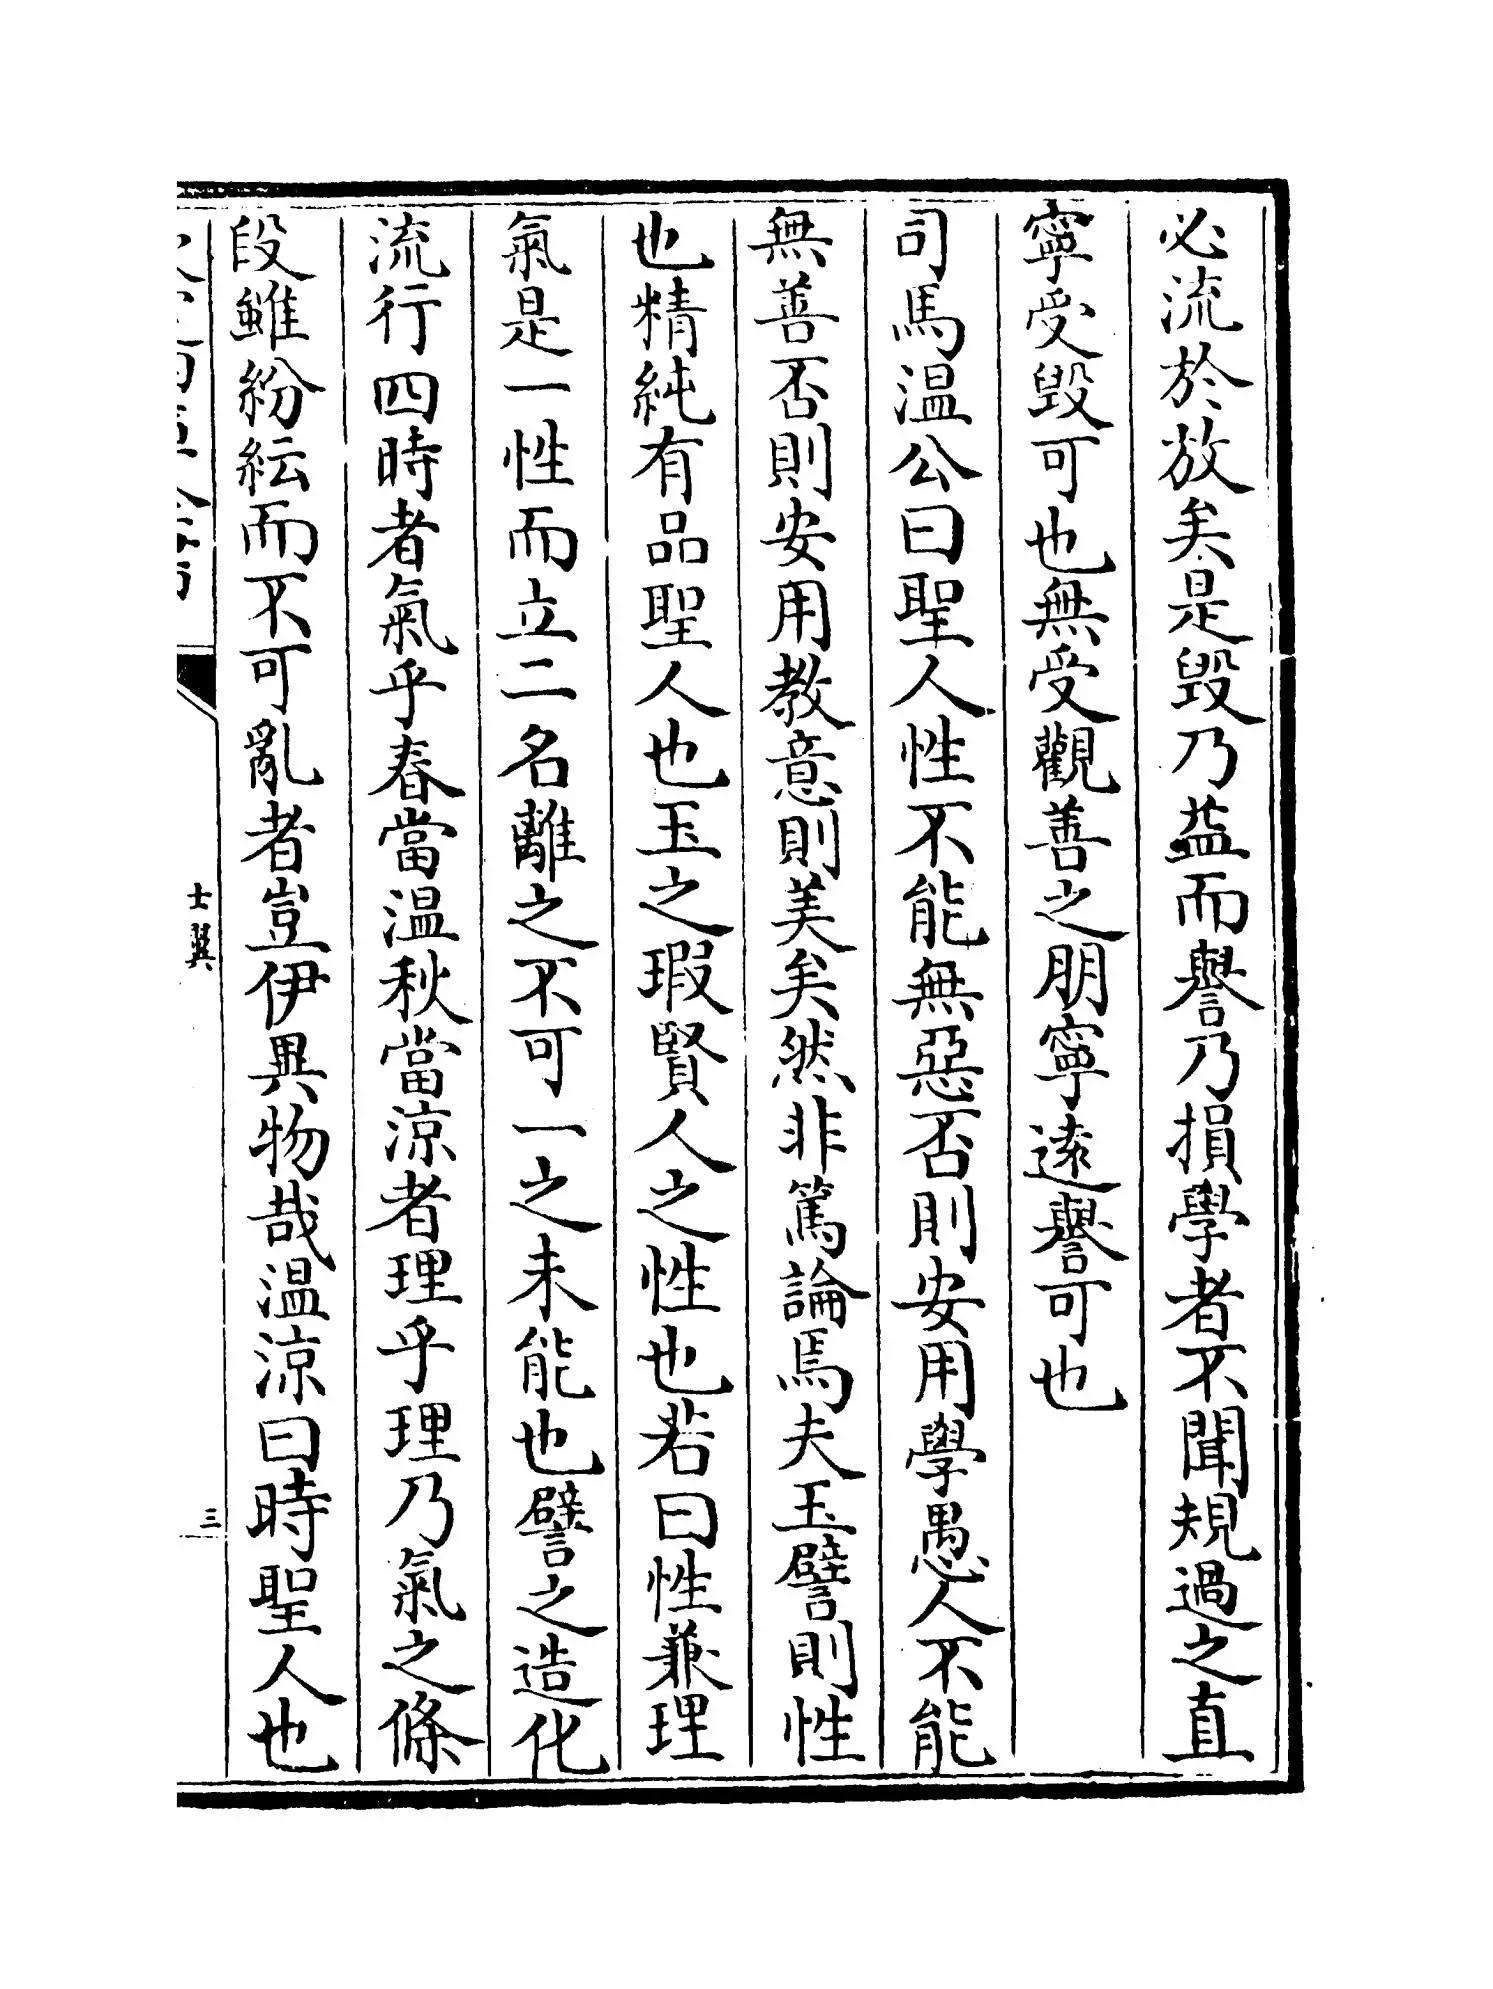 必流於放矣是毀乃益而譽乃損學者不聞規過之直
寧受毀可也無受觀善之朋寧逺譽可也
司馬温公曰聖人性不能無惡否則安用學愚人不能
無善否則安用教意則美矣然非篤論焉夫玉譬則性
也精純有品聖人也玉之瑕賢人之性也若曰性兼理
氣是一性而立二名離之不可一之未能也譬之造化
流行四時者氣乎春當温秋當涼者理乎理乃氣之條
段雖紛紜而不可亂者豈伊異物哉温涼曰時聖人也
士翼
三